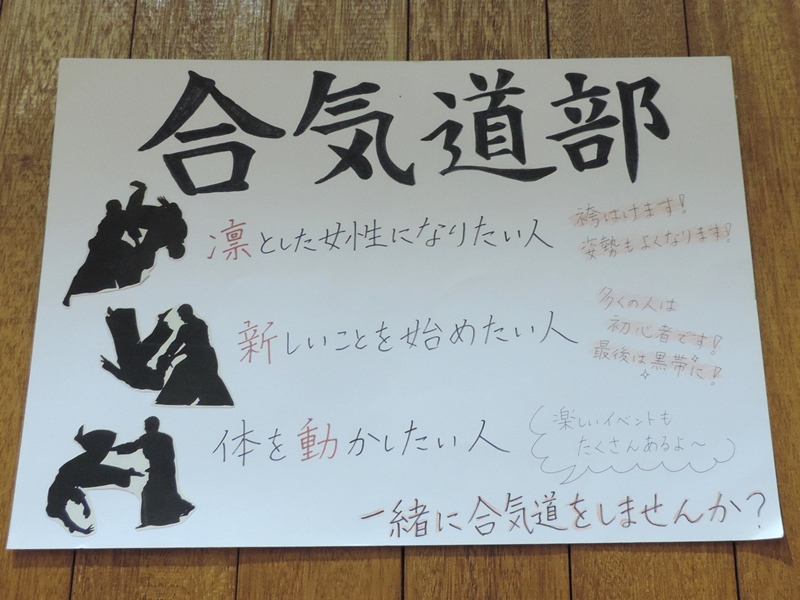 合気道部
凛とした女性になりたい人
袴はけます!
姿勢もよくなります!
新しいことを始めたい人
多くの人は
初心者です!
最後は黒帯に!
体を動かしたい人
楽しいイベントも
たくさんあるよ～
一緒に合気道をしませんか?